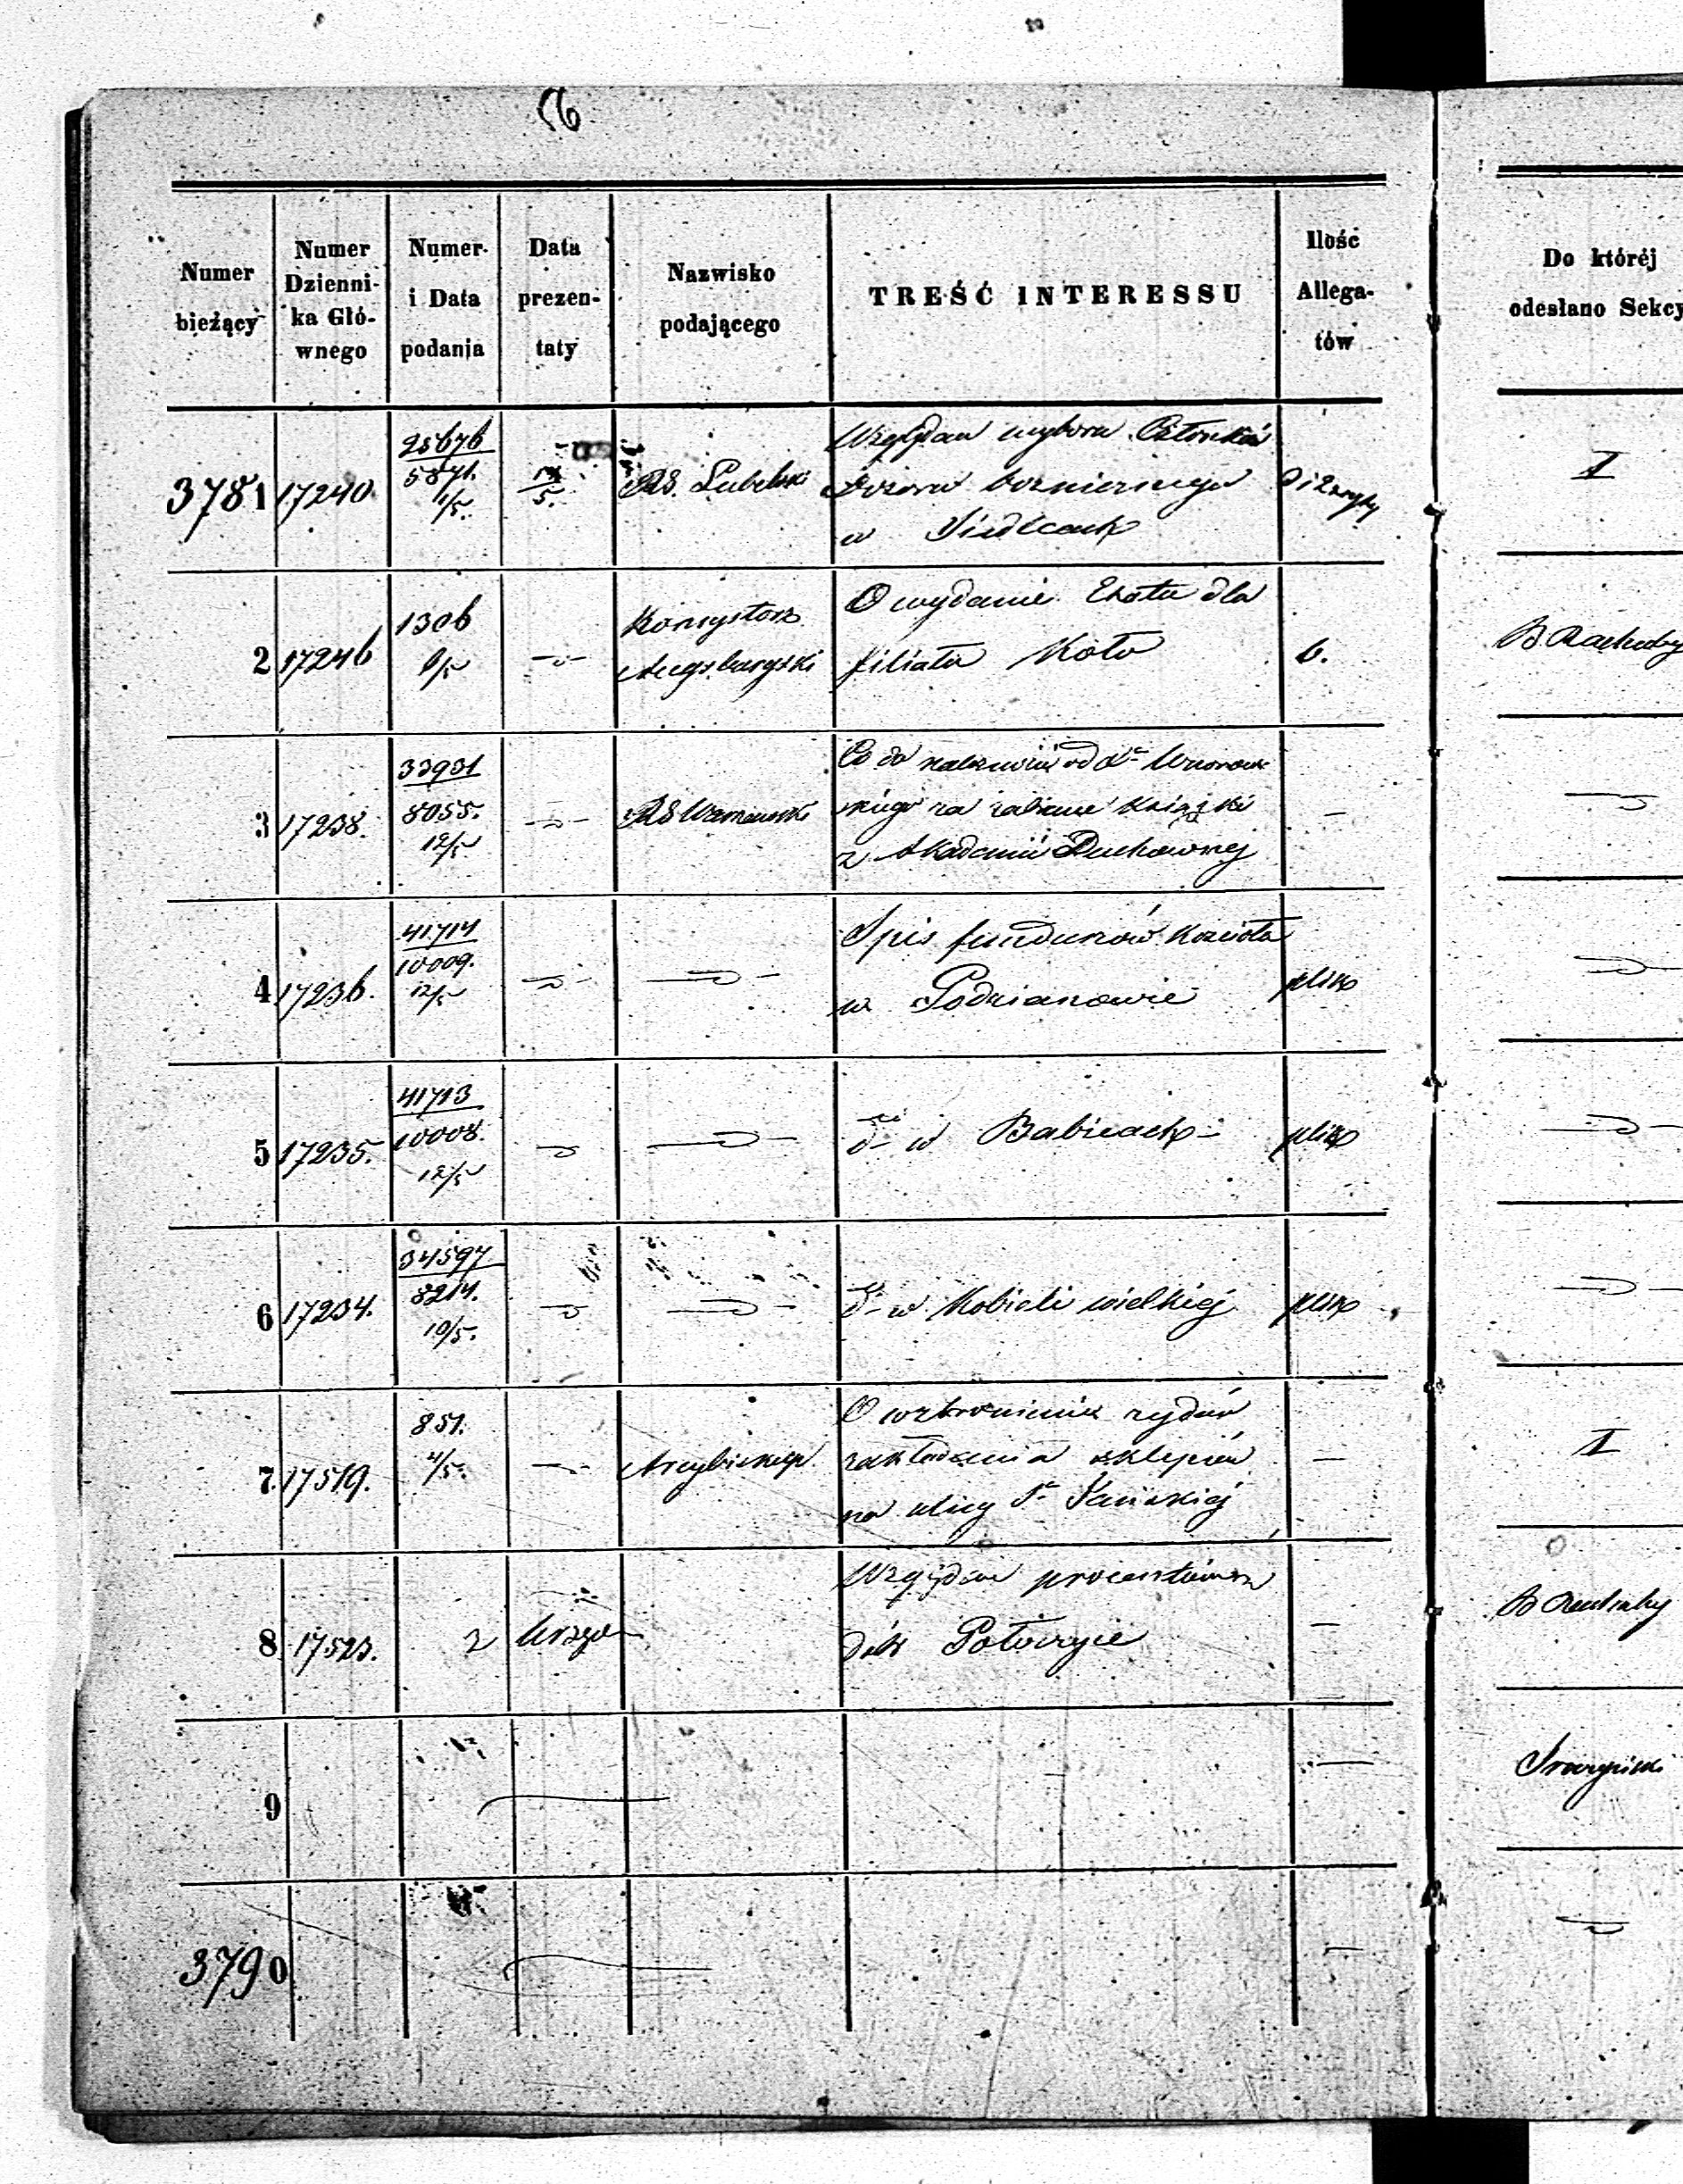 56
Numer bieżący
Numer Dzienni- ka Głó- wnego
Numer i Data podania
Data prezen- taty
Nazwisko podającego
TREŚĆ INTERESSU
Ilość Allega- tów
Do któréj odesłano Sekcy
3781 17240 25676 5871. 1/5. 14/5. RG. Lubelski
Względem wyboru Członków
Dozoru bożniczego
w Siedlcach
I
2 17246 1306 9/5 Konsystorz Augsburgski
O wydanie Etatu dla
filiału Koło
6.
B. Rachuby
3 17238. 33931 8055. 12/5 RG Warszawski
Co do należności od
za zabrane książki
z Akademii Duchownej
4 17236. 41714 10009. 12/5
Spis funduszów Kościoła
w Podzianowie
plik
5 17235. 41713 10008. 12/5
do w Babicach
plik
6 17234. 34597 8214. 10/5.
do w Kobieli wielkiej
plik
7. 17519. 851. 4/5. Arcybiskup.
O wzbronienie żydom
zakładania sklepów
na ulicy Sto Jańskiej
I
8 17523. z Urzędu
Względem procentów z
dóbr Potoczyce
B Rachuby
9
3790